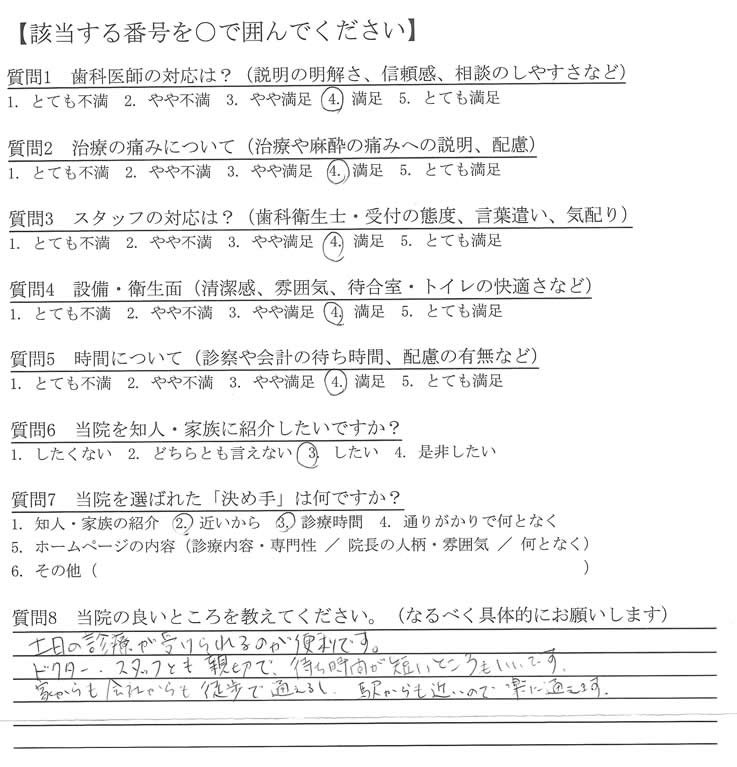 【該当する番号を○で囲んでください】
質問1 歯科医師の対応は？（説明の明解さ、信頼感、相談のしやすさなど）
1. とても不満 2. やや不満 3. やや満足 4. 満足 5. とても満足
質問2 治療の痛みについて（治療や麻酔の痛みへの説明、配慮）
1. とても不満 2. やや不満 3. やや満足 4. 満足 5. とても満足
質問3 スタッフの対応は？（歯科衛生士・受付の態度、言葉遣い、気配り）
1. とても不満 2. やや不満 3. やや満足 4. 満足 5. とても満足
質問4 設備・衛生面（清潔感、雰囲気、待合室・トイレの快適さなど）
1. とても不満 2. やや不満 3. やや満足 4. 満足 5. とても満足
質問5 時間について（診察や会計の待ち時間、配慮の有無など）
1. とても不満 2. やや不満 3. やや満足 4. 満足 5. とても満足
質問6 当院を知人・家族に紹介したいですか？
1. したくない 2. どちらとも言えない 3. したい 4. 是非したい
質問7 当院を選ばれた「決め手」は何ですか？
1. 知人・家族の紹介 2. 近いから 3. 診療時間 4. 通りがかりで何となく
5. ホームページの内容（診療内容・専門性 ／ 院長の人柄・雰囲気 ／ 何となく）
6. その他（ ）
質問8 当院の良いところを教えてください。（なるべく具体的にお願いします）
土日の診療が受けられるのが便利です。
ドクター・スタッフとも親切で、待ち時間が短いところもいいです。
家からも会社からも徒歩で通えるし、駅からも近いので楽に通えます。